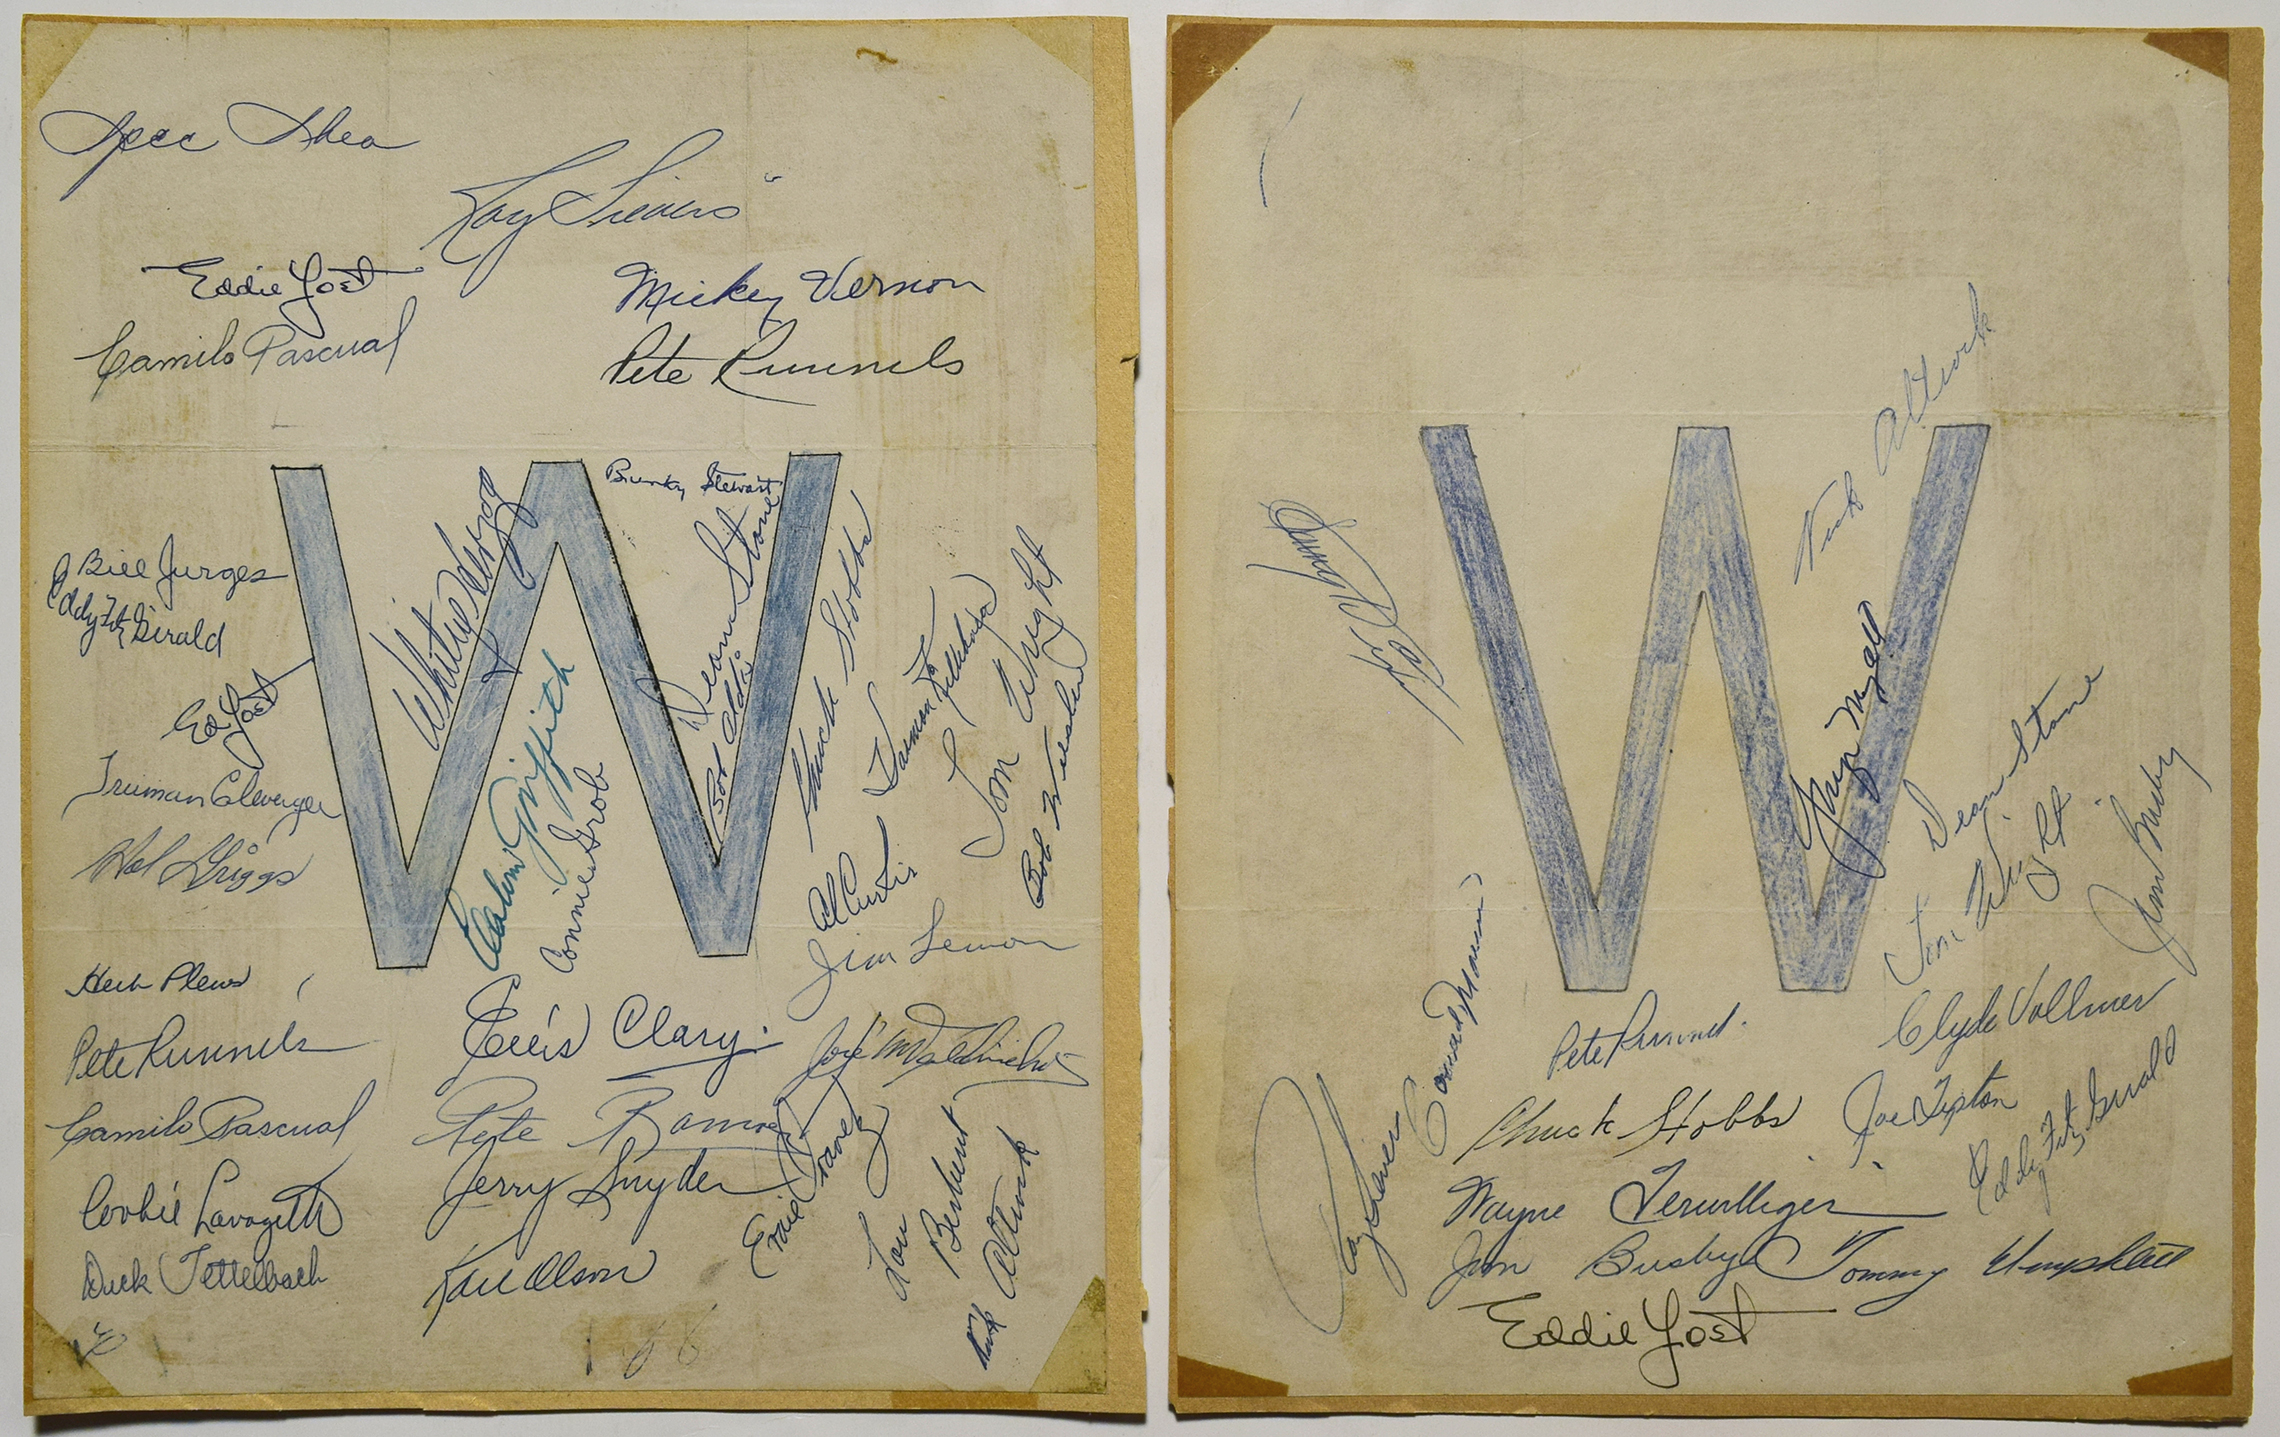 Spec Shea
Roy Sievers
Eddie Yost
Mickey Vernon
Camilo Pascual
Pete Runnels
W
Bunky Stewart
Whitey Herzog
Dean Stone
Bob Addie
Chuck Stobbs
Bill Jurges
Eddy Fitz Gerald
Ed Yost
Truman Clevenger
Hal Griggs
Calvin Griffith
Connie Grob
Harmon Killebrew
Tom Wright
Bob Wiesler
Al Curtis
Jim Lemon
Herb Plews
Pete Runnels
Ellis Clary
José Valdivielso
Camilo Pascual
Pedro Ramos
Cookie Lavagetto
Jerry Snyder
Ernie Oravetz
Lou Berberet
Nick Altrock
Dick Tettelbach
Karl Olson
W
Nick Altrock
Dean Stone
Tom Wright
Jim Busby
Conrad Marrero
Pete Runnels
Clyde Vollmer
Roy Sievers
Chuck Stobbs
Joe Tipton
Eddy Fitz Gerald
Wayne Terwilliger
Jim Busby
Tommy Umphlett
Eddie Yost